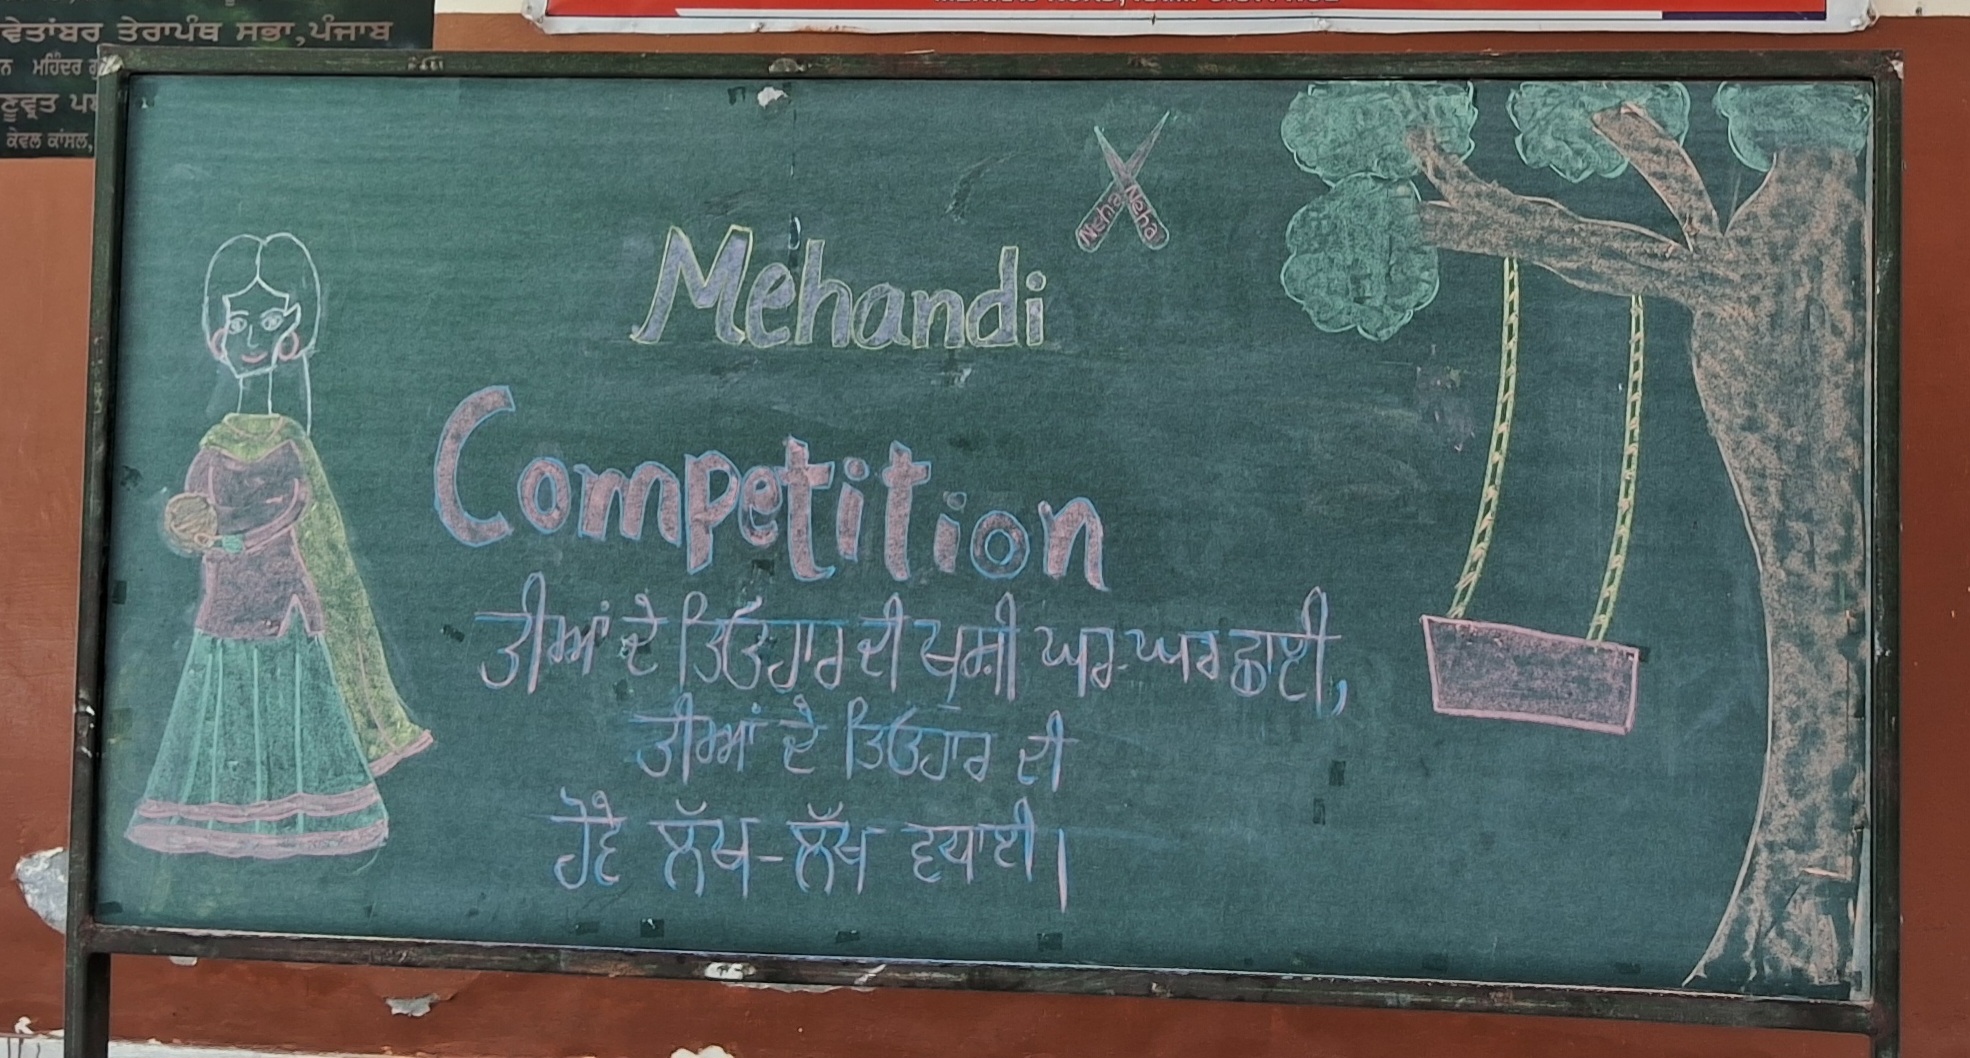 ਵੇਤਾਂਬਰ ਤੇਰਾਪੰਥ ਸਭਾ,ਪੰਜਾਬ
ਮਹਿੰਦਰ
ਕੇਵਲ ਕਾਂਸਲ,
Neha Neha
Mehandi
Competition
ਤੀਆਂ ਦੇ ਤਿਓਹਾਰ ਦੀ ਖੁਸ਼ੀ ਘਰ-ਘਰ ਛਾਈ,
ਤੀਆਂ ਦੇ ਤਿਓਹਾਰ ਦੀ
ਹੋਵੇ ਲੱਖ-ਲੱਖ ਵਧਾਈ।